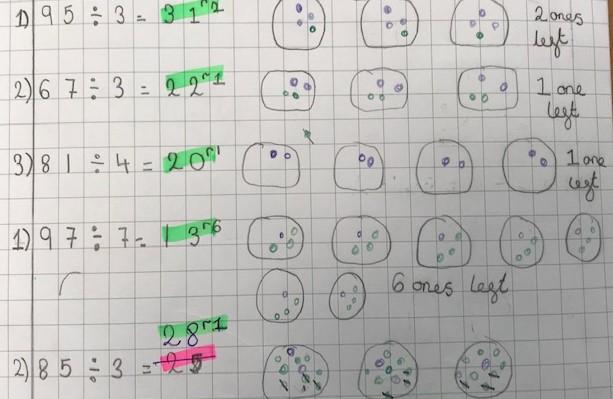 1) 95 ÷ 3 = 31 r2 2 ones left
2) 67 ÷ 3 = 22 r1 1 one left
3) 81 ÷ 4 = 20 r1 1 one left
1) 97 ÷ 7 = 13 r6
6 ones left
28 r1
2) 85 ÷ 3 = 25